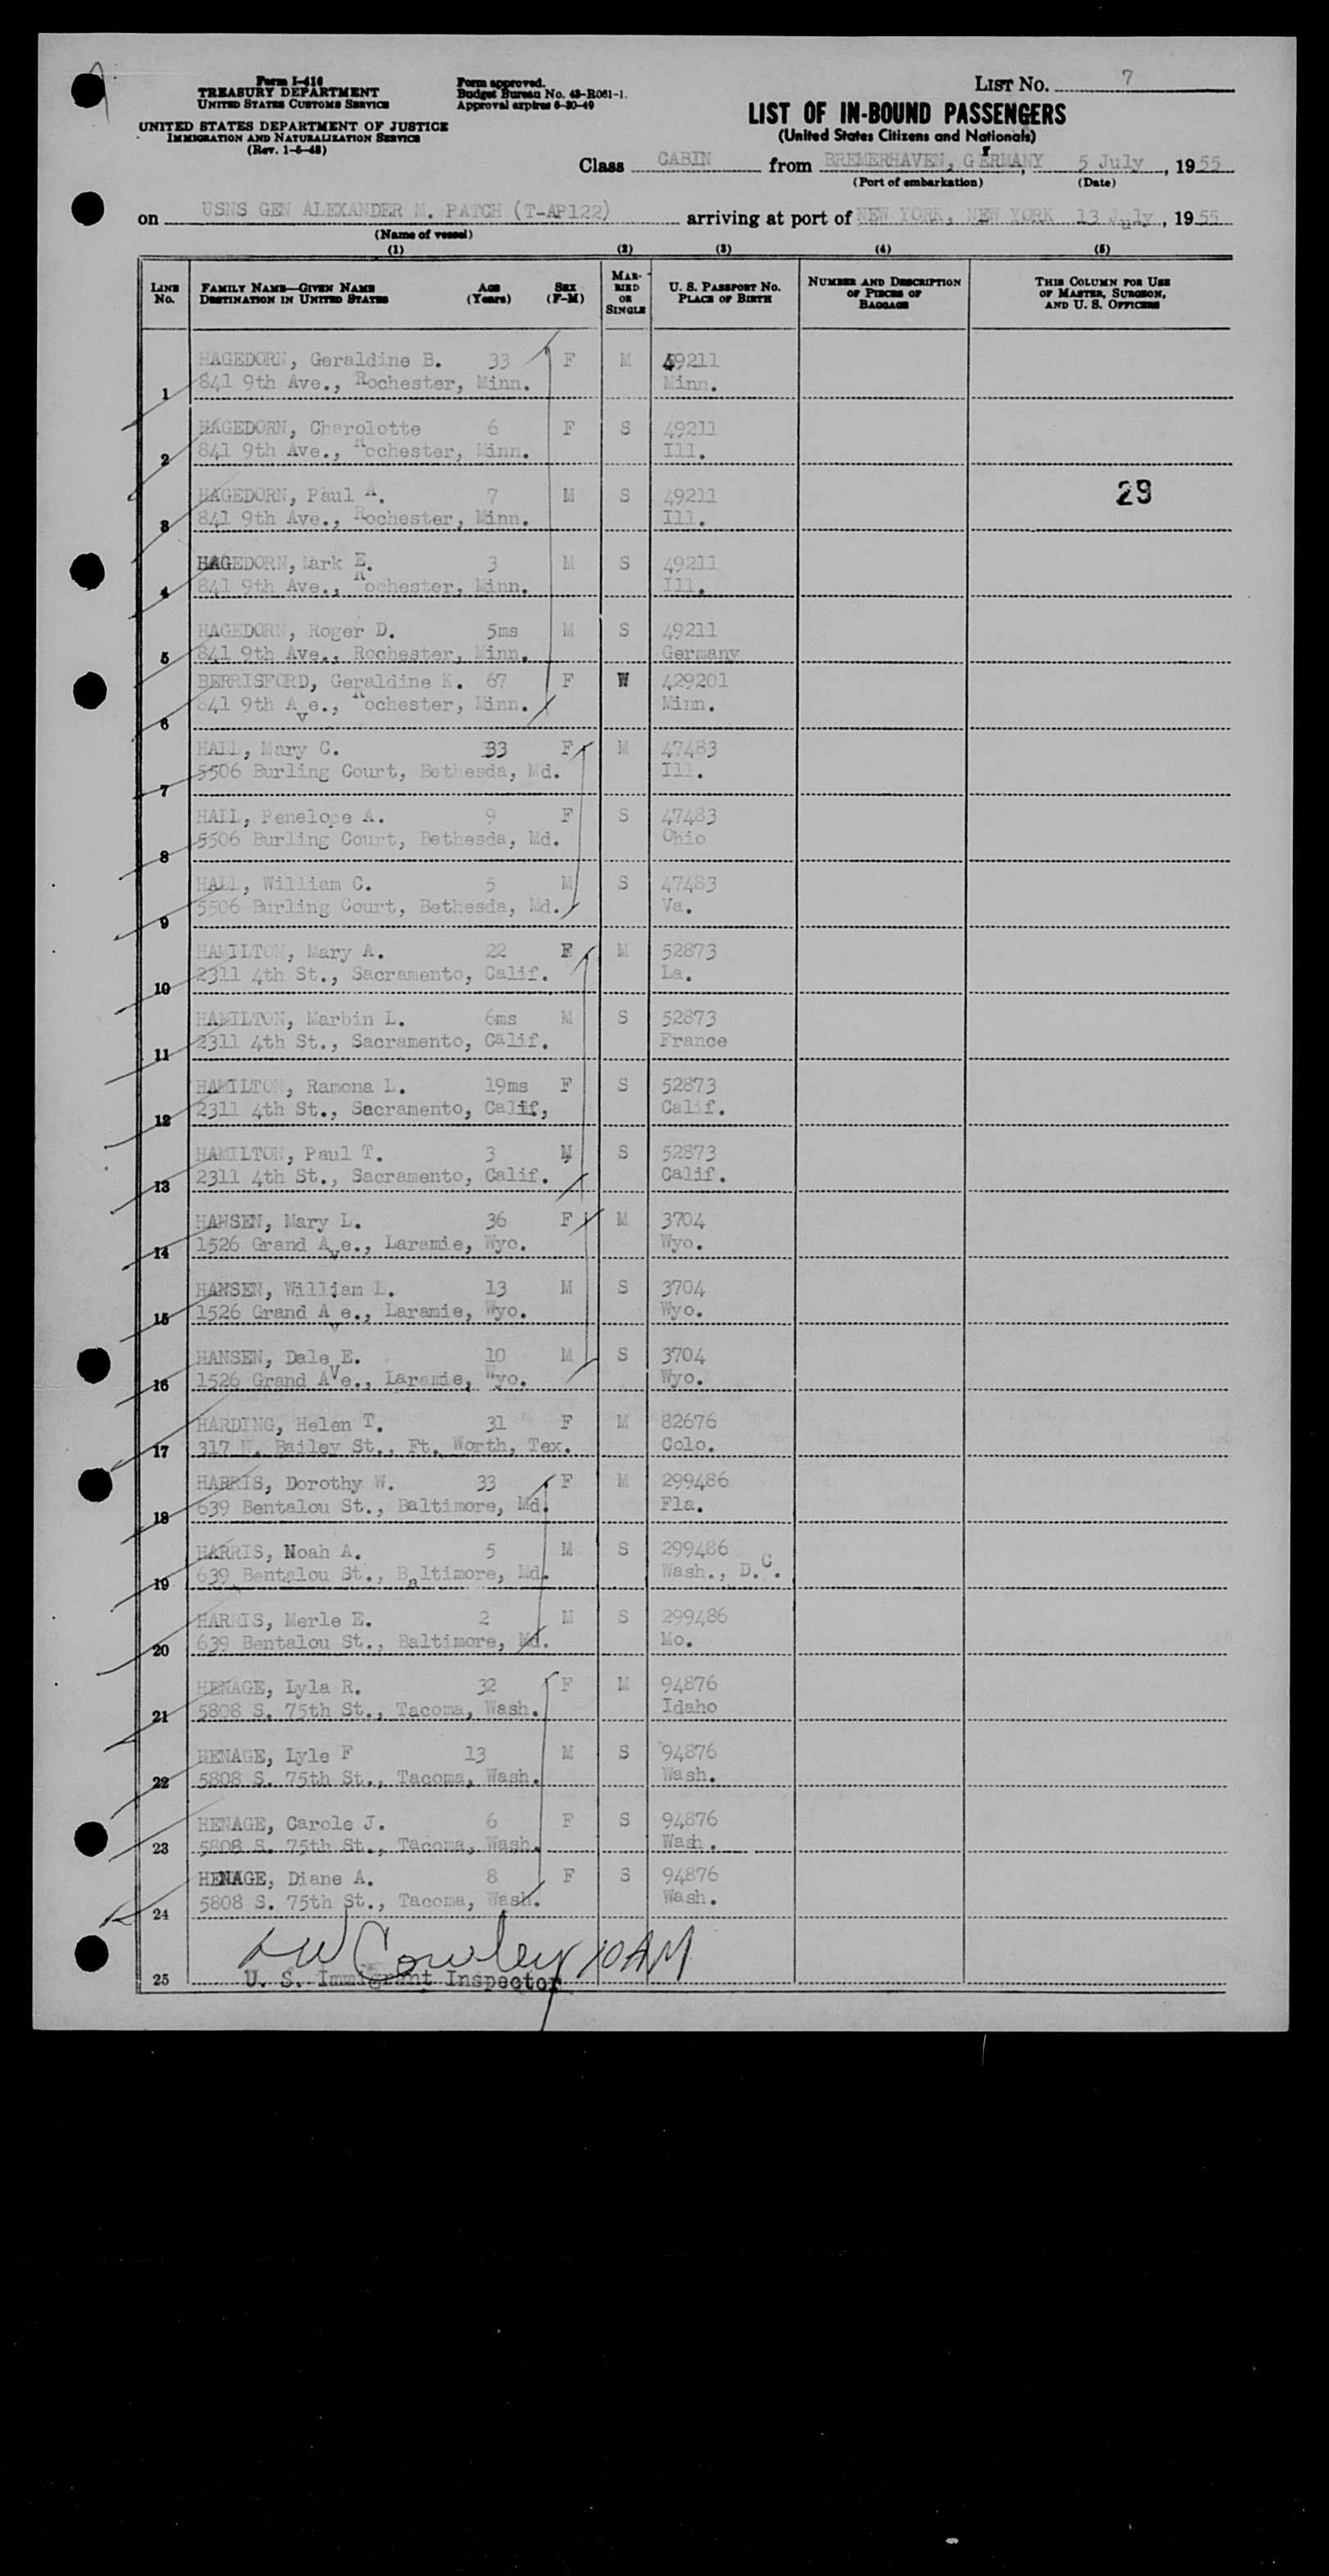 Form I-416
TREASURY DEPARTMENT
UNITED STATES CUSTOMS SERVICE
UNITED STATES DEPARTMENT OF JUSTICE
IMMIGRATION AND NATURALIZATION SERVICE
(Rev. 1-5-48)
Form approved.
Budget Bureau No. 43-R061-1.
Approval expires 6-30-49
LIST NO. 7
LIST OF IN-BOUND PASSENGERS
(United States Citizens and Nationals)
Class CABIN from BREMERHAVEN, GERMANY, 5 July, 1955
(Port of embarkation) (Date)
on USNS GEN ALEXANDER M. PATCH (T-AP122) arriving at port of NEW YORK, NEW YORK 13 July, 1955
(Name of vessel)
(1) (2) (3) (4) (5)
LINE NO. FAMILY NAME—GIVEN NAME DESTINATION IN UNITED STATES AGE (Years) SEX (F-M) MARRIED OR SINGLE U. S. PASSPORT NO. PLACE OF BIRTH NUMBER AND DESCRIPTION OF PIECES OF BAGGAGE THIS COLUMN FOR USE OF MASTER, SURGEON, AND U. S. OFFICERS
HAGEDORN, Geraldine B. 33 F M 49211
1 841 9th Ave., Rochester, Minn. Minn.
HAGEDORN, Charolotte 6 F S 49211
2 841 9th Ave., Rochester, Minn. Ill.
HAGEDORN, Paul A. 7 M S 49211 29
3 841 9th Ave., Rochester, Minn. Ill.
HAGEDORN, Mark E. 3 M S 49211
4 841 9th Ave., Rochester, Minn. Ill.
HAGEDORN, Roger D. 5ms M S 49211
5 841 9th Ave., Rochester, Minn. Germany
BERRISFORD, Geraldine K. 67 F W 429201
6 841 9th Ave., Rochester, Minn. Minn.
HALL, Mary C. 33 F M 47483
7 5506 Burling Court, Bethesda, Md. Ill.
HALL, Penelope A. 9 F S 47483
8 5506 Burling Court, Bethesda, Md. Ohio
HALL, William C. 5 M S 47483
9 5506 Burling Court, Bethesda, Md. Va.
HAMILTON, Mary A. 22 F M 52873
10 2311 4th St., Sacramento, Calif. La.
HAMILTON, Marbin L. 6ms M S 52873
11 2311 4th St., Sacramento, Calif. France
HAMILTON, Ramona L. 19ms F S 52873
12 2311 4th St., Sacramento, Calif, Calif.
HAMILTON, Paul T. 3 M S 52873
13 2311 4th St., Sacramento, Calif. Calif.
HANSEN, Mary L. 36 F M 3704
14 1526 Grand Ave., Laramie, Wyo. Wyo.
HANSEN, William L. 13 M S 3704
15 1526 Grand Ave., Laramie, Wyo. Wyo.
HANSEN, Dale E. 10 M S 3704
16 1526 Grand Ave., Laramie, Wyo. Wyo.
HARDING, Helen T. 31 F M 82676
17 317 N. Bailey St., Ft. Worth, Tex. Colo.
HARRIS, Dorothy W. 33 F M 299486
18 639 Bentalou St., Baltimore, Md. Fla.
HARRIS, Noah A. 5 M S 299486
19 639 Bentalou St., Baltimore, Md. Wash., D.C.
HARRIS, Merle E. 2 M S 299486
20 639 Bentalou St., Baltimore, Md. Mo.
HENAGE, Lyla R. 32 F M 94876
21 5808 S. 75th St., Tacoma, Wash. Idaho
HENAGE, Lyle F 13 M S 94876
22 5808 S. 75th St., Tacoma, Wash. Wash.
HENAGE, Carole J. 6 F S 94876
23 5808 S. 75th St., Tacoma, Wash. Wash.
HENAGE, Diane A. 8 F S 94876
24 5808 S. 75th St., Tacoma, Wash. Wash.
Cowley 10AM
25 U. S. Immigrant Inspector